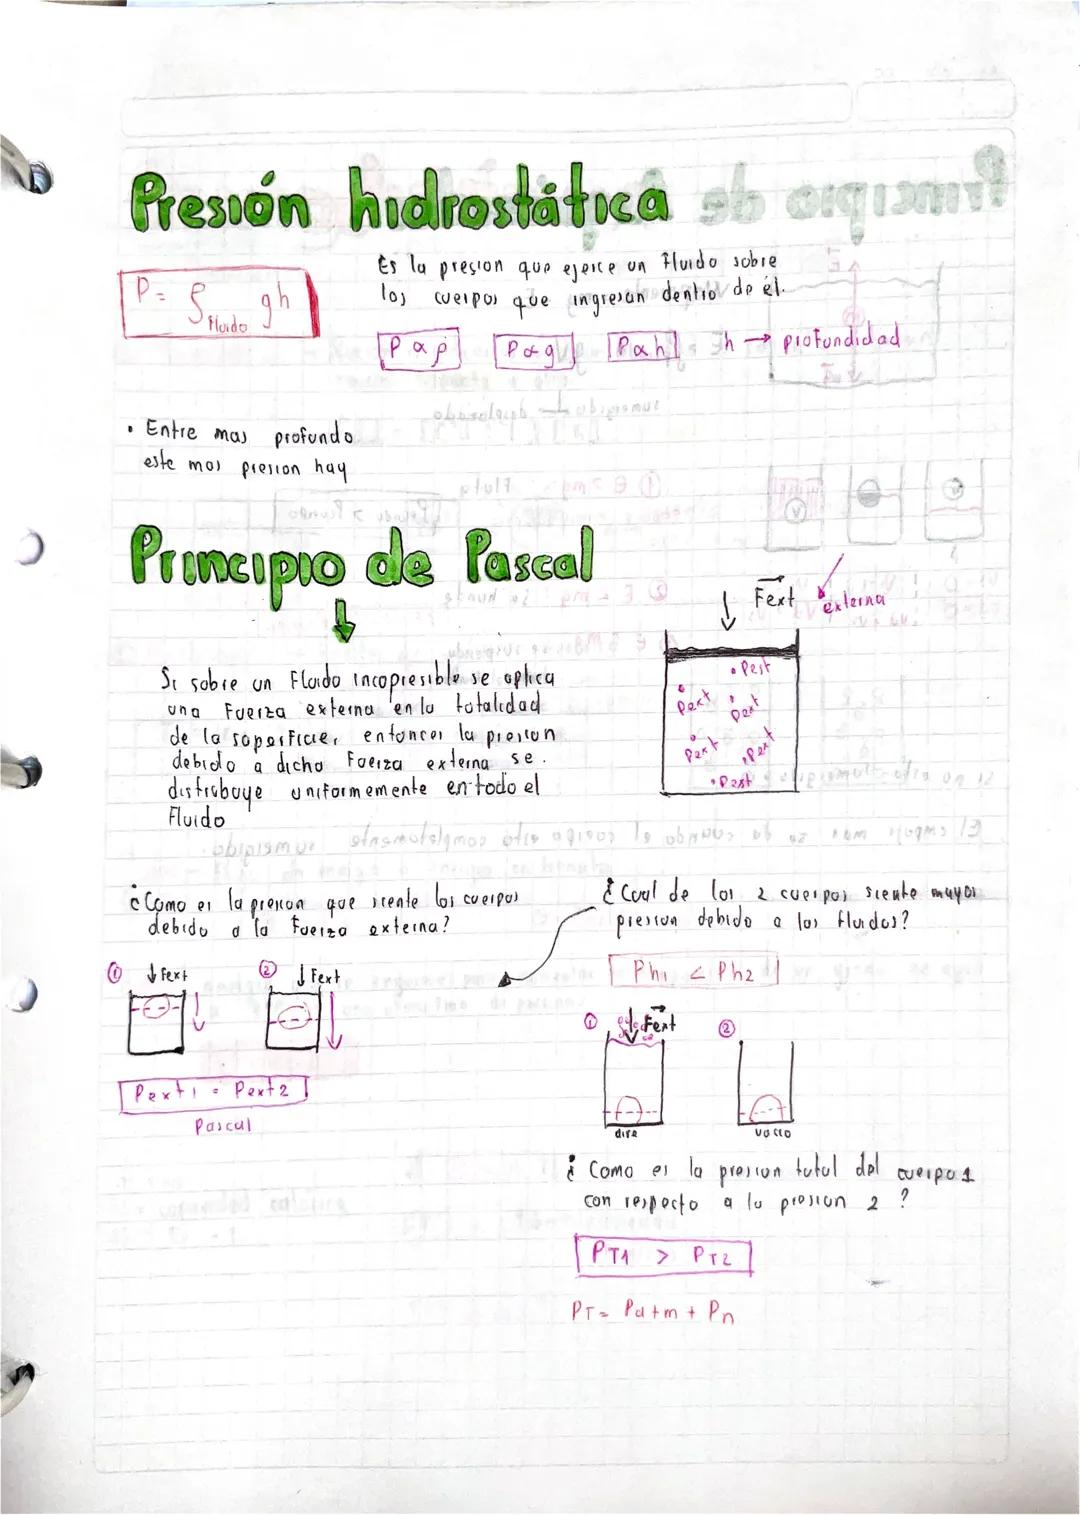 Presión hidrostática
P = ρ Fluido gh
Es la presion que ejerce un Fluido sobre
los cuerpos que ingresan dentro de él.
P α ρ
P α g
P α h
h → profundidad
• Entre mas profundo
este mas presion hay
Principio de Pascal
Fext
externa
Si sobre un Fluido incopresible se aplica
una Fuerza externa en la totalidad
de la superficie, entonces la presion
debido a dicha Fuerza externa se
distribuye uniformemente en todo el
Fluido
Pext
Pext
Pext
Pext
Pext
Pext
¿Como es la presion que siente los cuerpos
debido a la Fuerza externa?
① ↓ Fext
② ↓ Fext
Pext1 = Pext2
Pascal
¿Cual de los 2 cuerpos siente mayor
presion debido a los fluidos?
Ph1 < Ph2
① Fext
②
aire
vacio
¿Como es la presion total del cuerpo 1
con respecto a la presion 2?
PT1 > PT2
PT = Patm + Pn